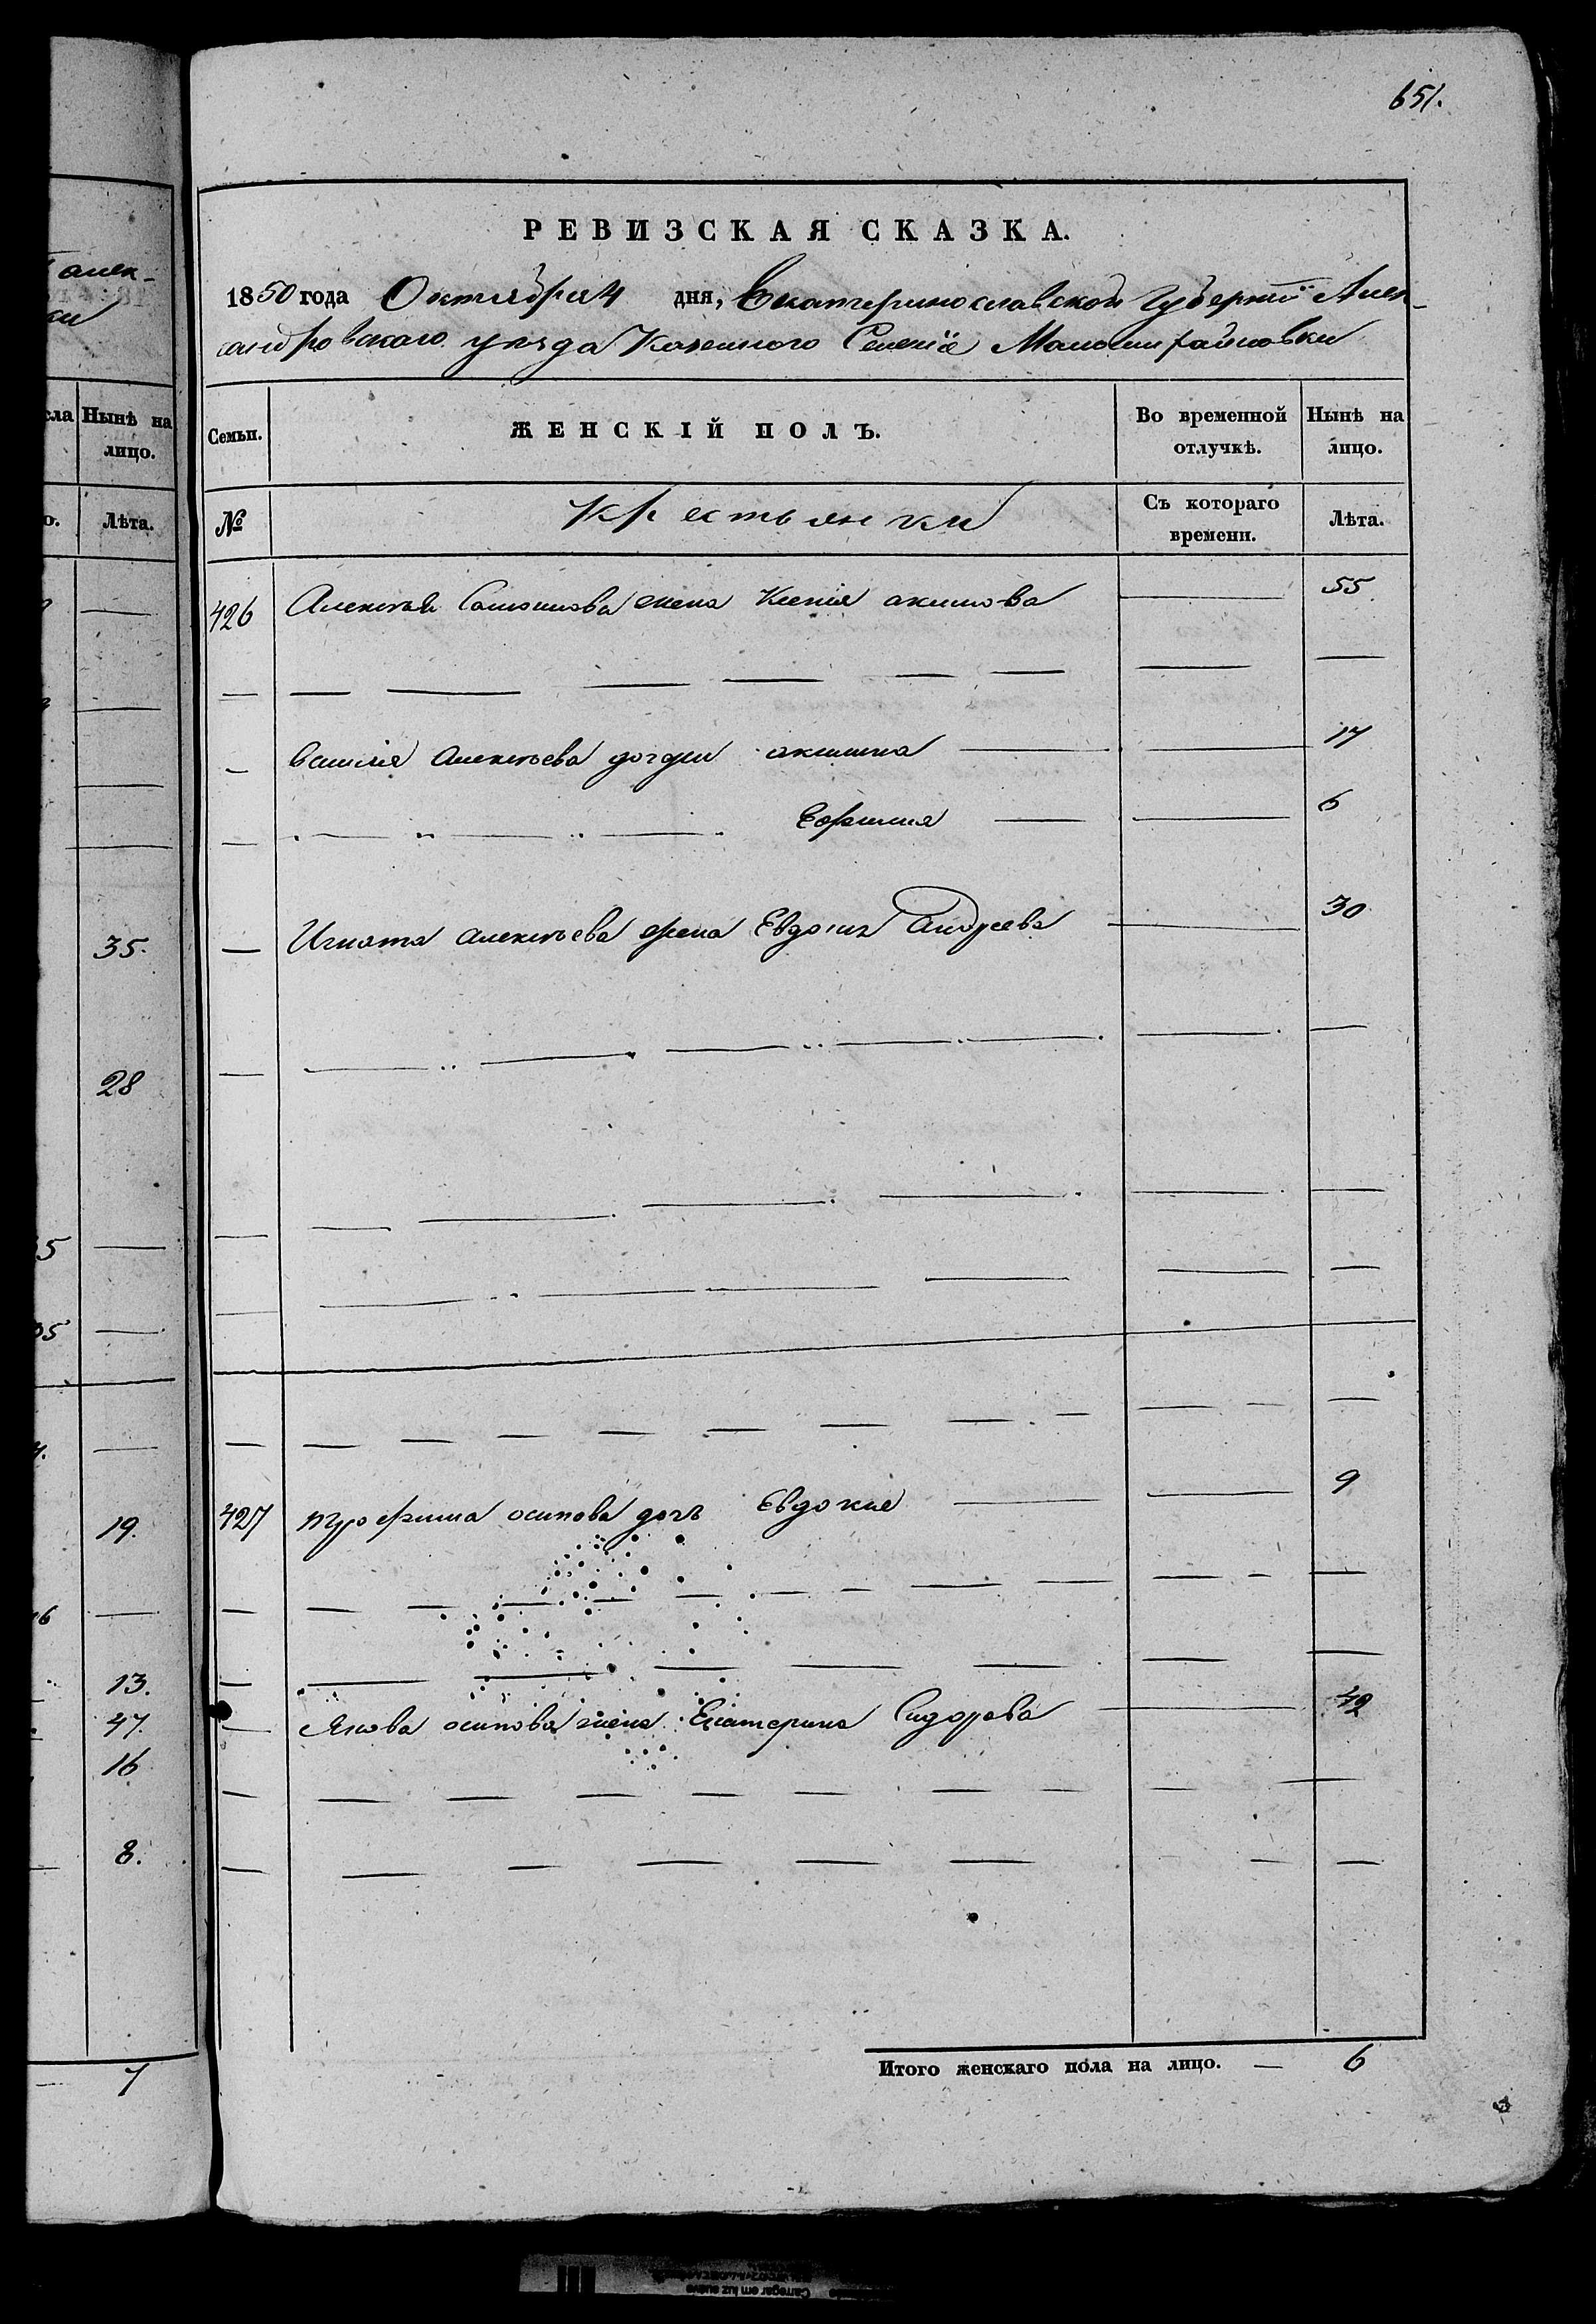 651.
РЕВИЗСКАЯ СКАЗКА.
1850 года Октября 4 дня, Екатеринославской Губернiи Алек-
сандровскаго уѣзда Казенного Селенiя Маломихайловки
Семьи. ЖЕНСКІЙ ПОЛЪ. Во временной отлучкѣ. Нынѣ на лицо.
№ Крестьянки Съ котораго времени. Лѣта.
426 Алексѣя жена Ксенiя акимова 55
Василiя Алексѣева дочери акилина 17
Ефимия 6
Игната алексѣева жена Евдокия Андреева 30
427 трофима осипова дочь Евдокия 9
Якова осипова жена Екатерина Сидорова 42
Итого женскаго пола на лицо. — 6
алек-
ки
сла Нынѣ на лицо.
о. Лѣта.
35.
28
5
05
19.
16
13.
47.
16
8.
7
Carregar em luz suave